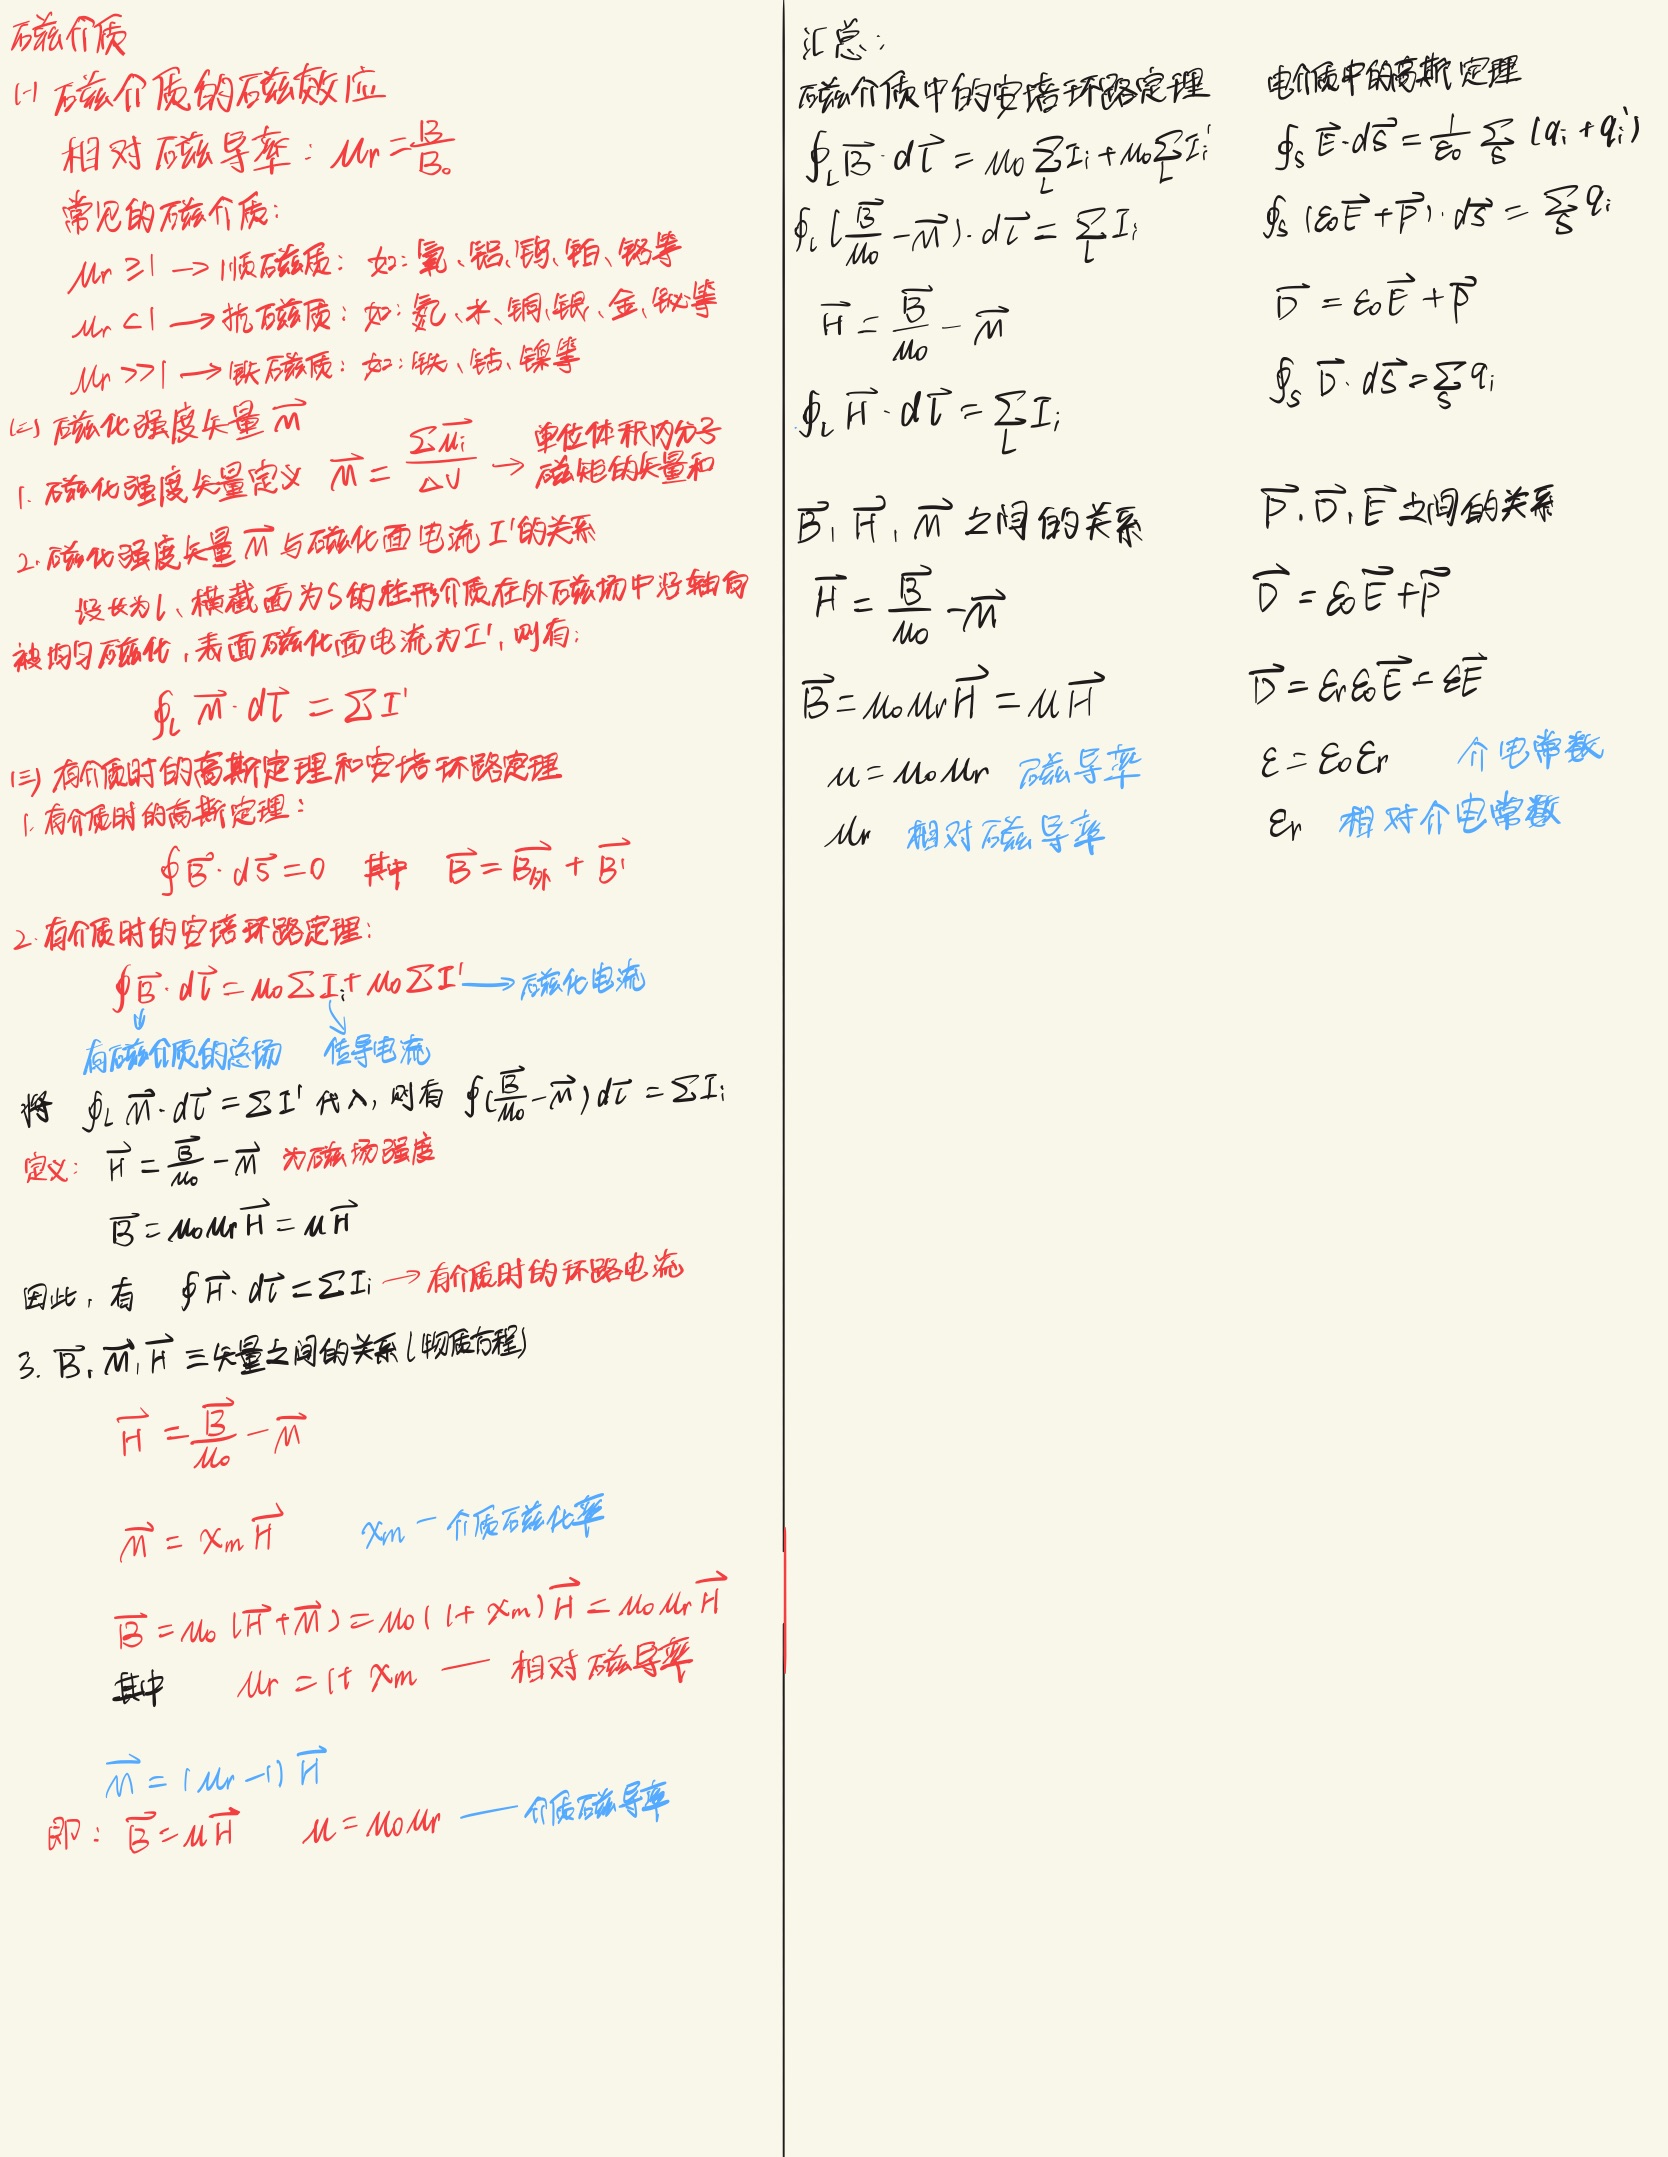 磁介质
(一) 磁介质的磁效应
相对磁导率：μr = B/B₀
常见的磁介质：
μr ≥ 1 → 顺磁质：如：氧、铝、钨、铂、铬等
μr < 1 → 抗磁质：如：氮、水、铜、银、金、铋等
μr >> 1 → 铁磁质：如：铁、钴、镍等
(二) 磁化强度矢量 M⃗
1. 磁化强度矢量定义 M⃗ = Σμ⃗i/ΔV → 单位体积内分子
磁矩的矢量和
2. 磁化强度矢量 M⃗ 与磁化面电流 I' 的关系
设长为 l、横截面为S的柱形介质在外磁场中沿轴向
被均匀磁化，表面磁化面电流为I'，则有：
∮L M⃗·dl⃗ = ΣI'
(三) 有介质时的高斯定理和安培环路定理
1. 有介质时的高斯定理：
∮B⃗·dS⃗ = 0 其中 B⃗ = B⃗外 + B⃗'
2. 有介质时的安培环路定理：
∮B⃗·dl⃗ = μ₀ΣIi + μ₀ΣI' → 磁化电流
有磁介质的总场 传导电流
将 ∮L M⃗·dl⃗ = ΣI' 代入，则有 ∮(B⃗/μ₀ - M⃗)dl⃗ = ΣIi
定义：H⃗ = B⃗/μ₀ - M⃗ 为磁场强度
B⃗ = μ₀μrH⃗ = μH⃗
因此，有 ∮H⃗·dl⃗ = ΣIi → 有介质时的环路电流
3. B⃗，M⃗，H⃗ 三矢量之间的关系(物质方程)
H⃗ = B⃗/μ₀ - M⃗
M⃗ = χmH⃗ χm — 介质磁化率
B⃗ = μ₀(H⃗+M⃗) = μ₀(1+χm)H⃗ = μ₀μrH⃗
其中 μr = 1+χm — 相对磁导率
M⃗ = (μr-1)H⃗
即：B⃗ = μH⃗ μ = μ₀μr — 介质磁导率
汇总：
磁介质中的安培环路定理
∮L B⃗·dl⃗ = μ₀ΣL Ii + μ₀ΣL Ii'
∮L (B⃗/μ₀ - M⃗)·dl⃗ = ΣL Ii
H⃗ = B⃗/μ₀ - M⃗
∮L H⃗·dl⃗ = ΣL Ii
B⃗，H⃗，M⃗ 之间的关系
H⃗ = B⃗/μ₀ - M⃗
B⃗ = μ₀μrH⃗ = μH⃗
μ = μ₀μr 磁导率
μr 相对磁导率
电介质中的高斯定理
∮S E⃗·dS⃗ = 1/ε₀ ΣS (qi + qi')
∮S (ε₀E⃗+P⃗)·dS⃗ = ΣS qi
D⃗ = ε₀E⃗ + P⃗
∮S D⃗·dS⃗ = ΣS qi
P⃗，D⃗，E⃗ 之间的关系
D⃗ = ε₀E⃗ + P⃗
D⃗ = εrε₀E⃗ = εE⃗
ε = ε₀εr 介电常数
εr 相对介电常数